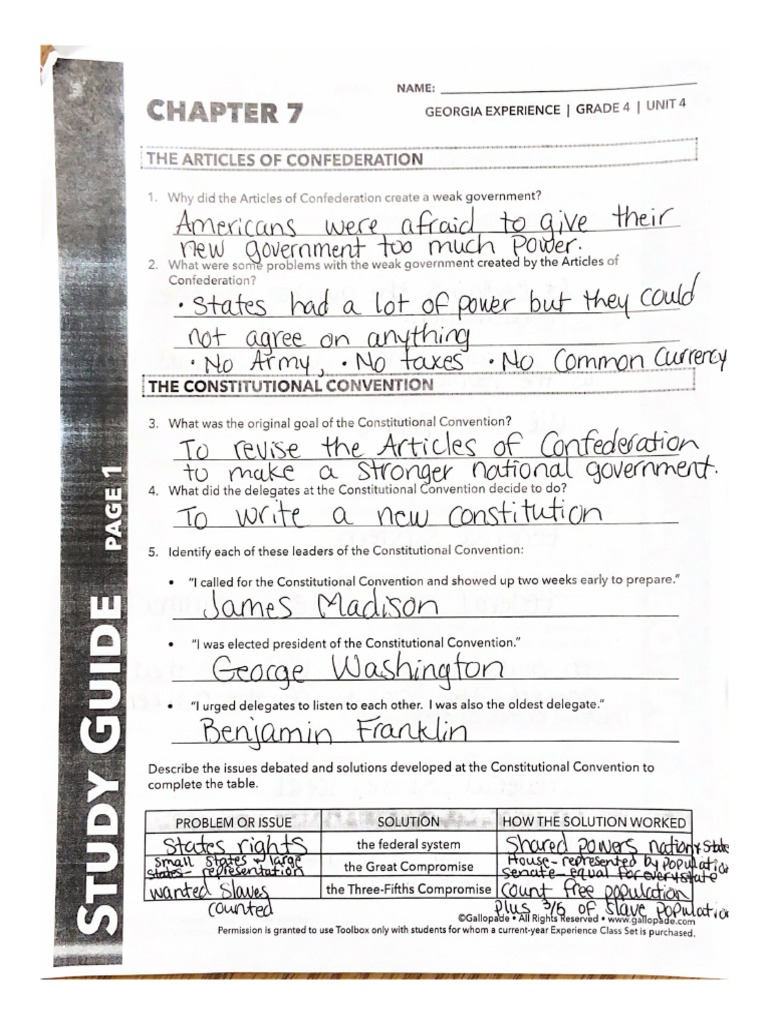 3
NAME:
CHAPTER 7
GEORGIA EXPERIENCE | GRADE 4 | UNIT 4
THE ARTICLES OF CONFEDERATION
1. Why did the Articles of Confederation create a weak government?
Americans were afraid to give their
new government too much power.
2. What were some problems with the weak government created by the Articles of
Confederation?
• States had a lot of power but they could
not agree on anything
• No Army, • No taxes • No Common Currency
THE CONSTITUTIONAL CONVENTION
3. What was the original goal of the Constitutional Convention?
To revise the Articles of Confederation
to make a Stronger national government.
4. What did the delegates at the Constitutional Convention decide to do?
To write a new constitution
5. Identify each of these leaders of the Constitutional Convention:
• "I called for the Constitutional Convention and showed up two weeks early to prepare."
James Madison
• "I was elected president of the Constitutional Convention."
George Washington
• "I urged delegates to listen to each other. I was also the oldest delegate."
Benjamin Franklin
Describe the issues debated and solutions developed at the Constitutional Convention to
complete the table.
PROBLEM OR ISSUE SOLUTION HOW THE SOLUTION WORKED
States rights the federal system Shared powers nation & State
Small States & large
states - representation the Great Compromise House - represented by population
Senate - equal for every state
wanted Slaves
counted the Three-Fifths Compromise count free population
plus 3/5 of slave population
©Gallopade • All Rights Reserved • www.gallopade.com
Permission is granted to use Toolbox only with students for whom a current-year Experience Class Set is purchased.
STUDY GUIDE PAGE 1